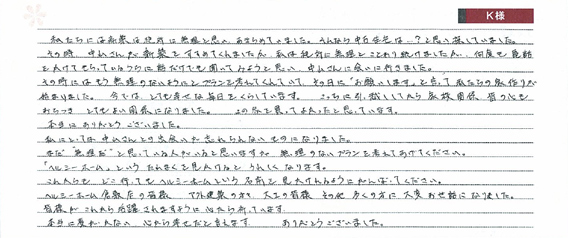 K様
私たちには新築は絶対に無理と思い、あきらめていました。それなら中古住宅は…？と思い探していました。
その時、中山さんが新築をすすめてくれましたが、私は絶対に無理とことわり続けましたが、何度も電話
をかけてもらっているうちに話だけでも聞いてみようと思い、中山さんに会いに行きました。
その時にはもう無理のないようにとプランを考えてくれていて、その日に"お願いします"と言って私たちの家作りが
始まりました。 今では、とても幸せな毎日をくらしています。 こっちに引っ越ししてから家族関係、皆の心も
おちつき とてもよい関係になりました。 この家を買ってよかったと思っています。
本当にありがとうございました。
私にとっては中山さんとの出会いが忘れられないものになりました。
まだ"無理だ"と思っている人がいると思いますが 無理のないプランを考えてあげてください。
「ヘルシーホーム」というたれまくを見かけると うれしくなります。
これからも どこ行ってもヘルシーホームという名前を見かけれるようにがんばってください。
ヘルシーホーム倉敷店の皆様 下外建築の方々 大工の皆様 その他多くの方に大変お世話になりました。
皆様がこれからも活躍されますように心から祈っています。
本当に家が大好き 心から幸せだと言えます ありがとうございました。